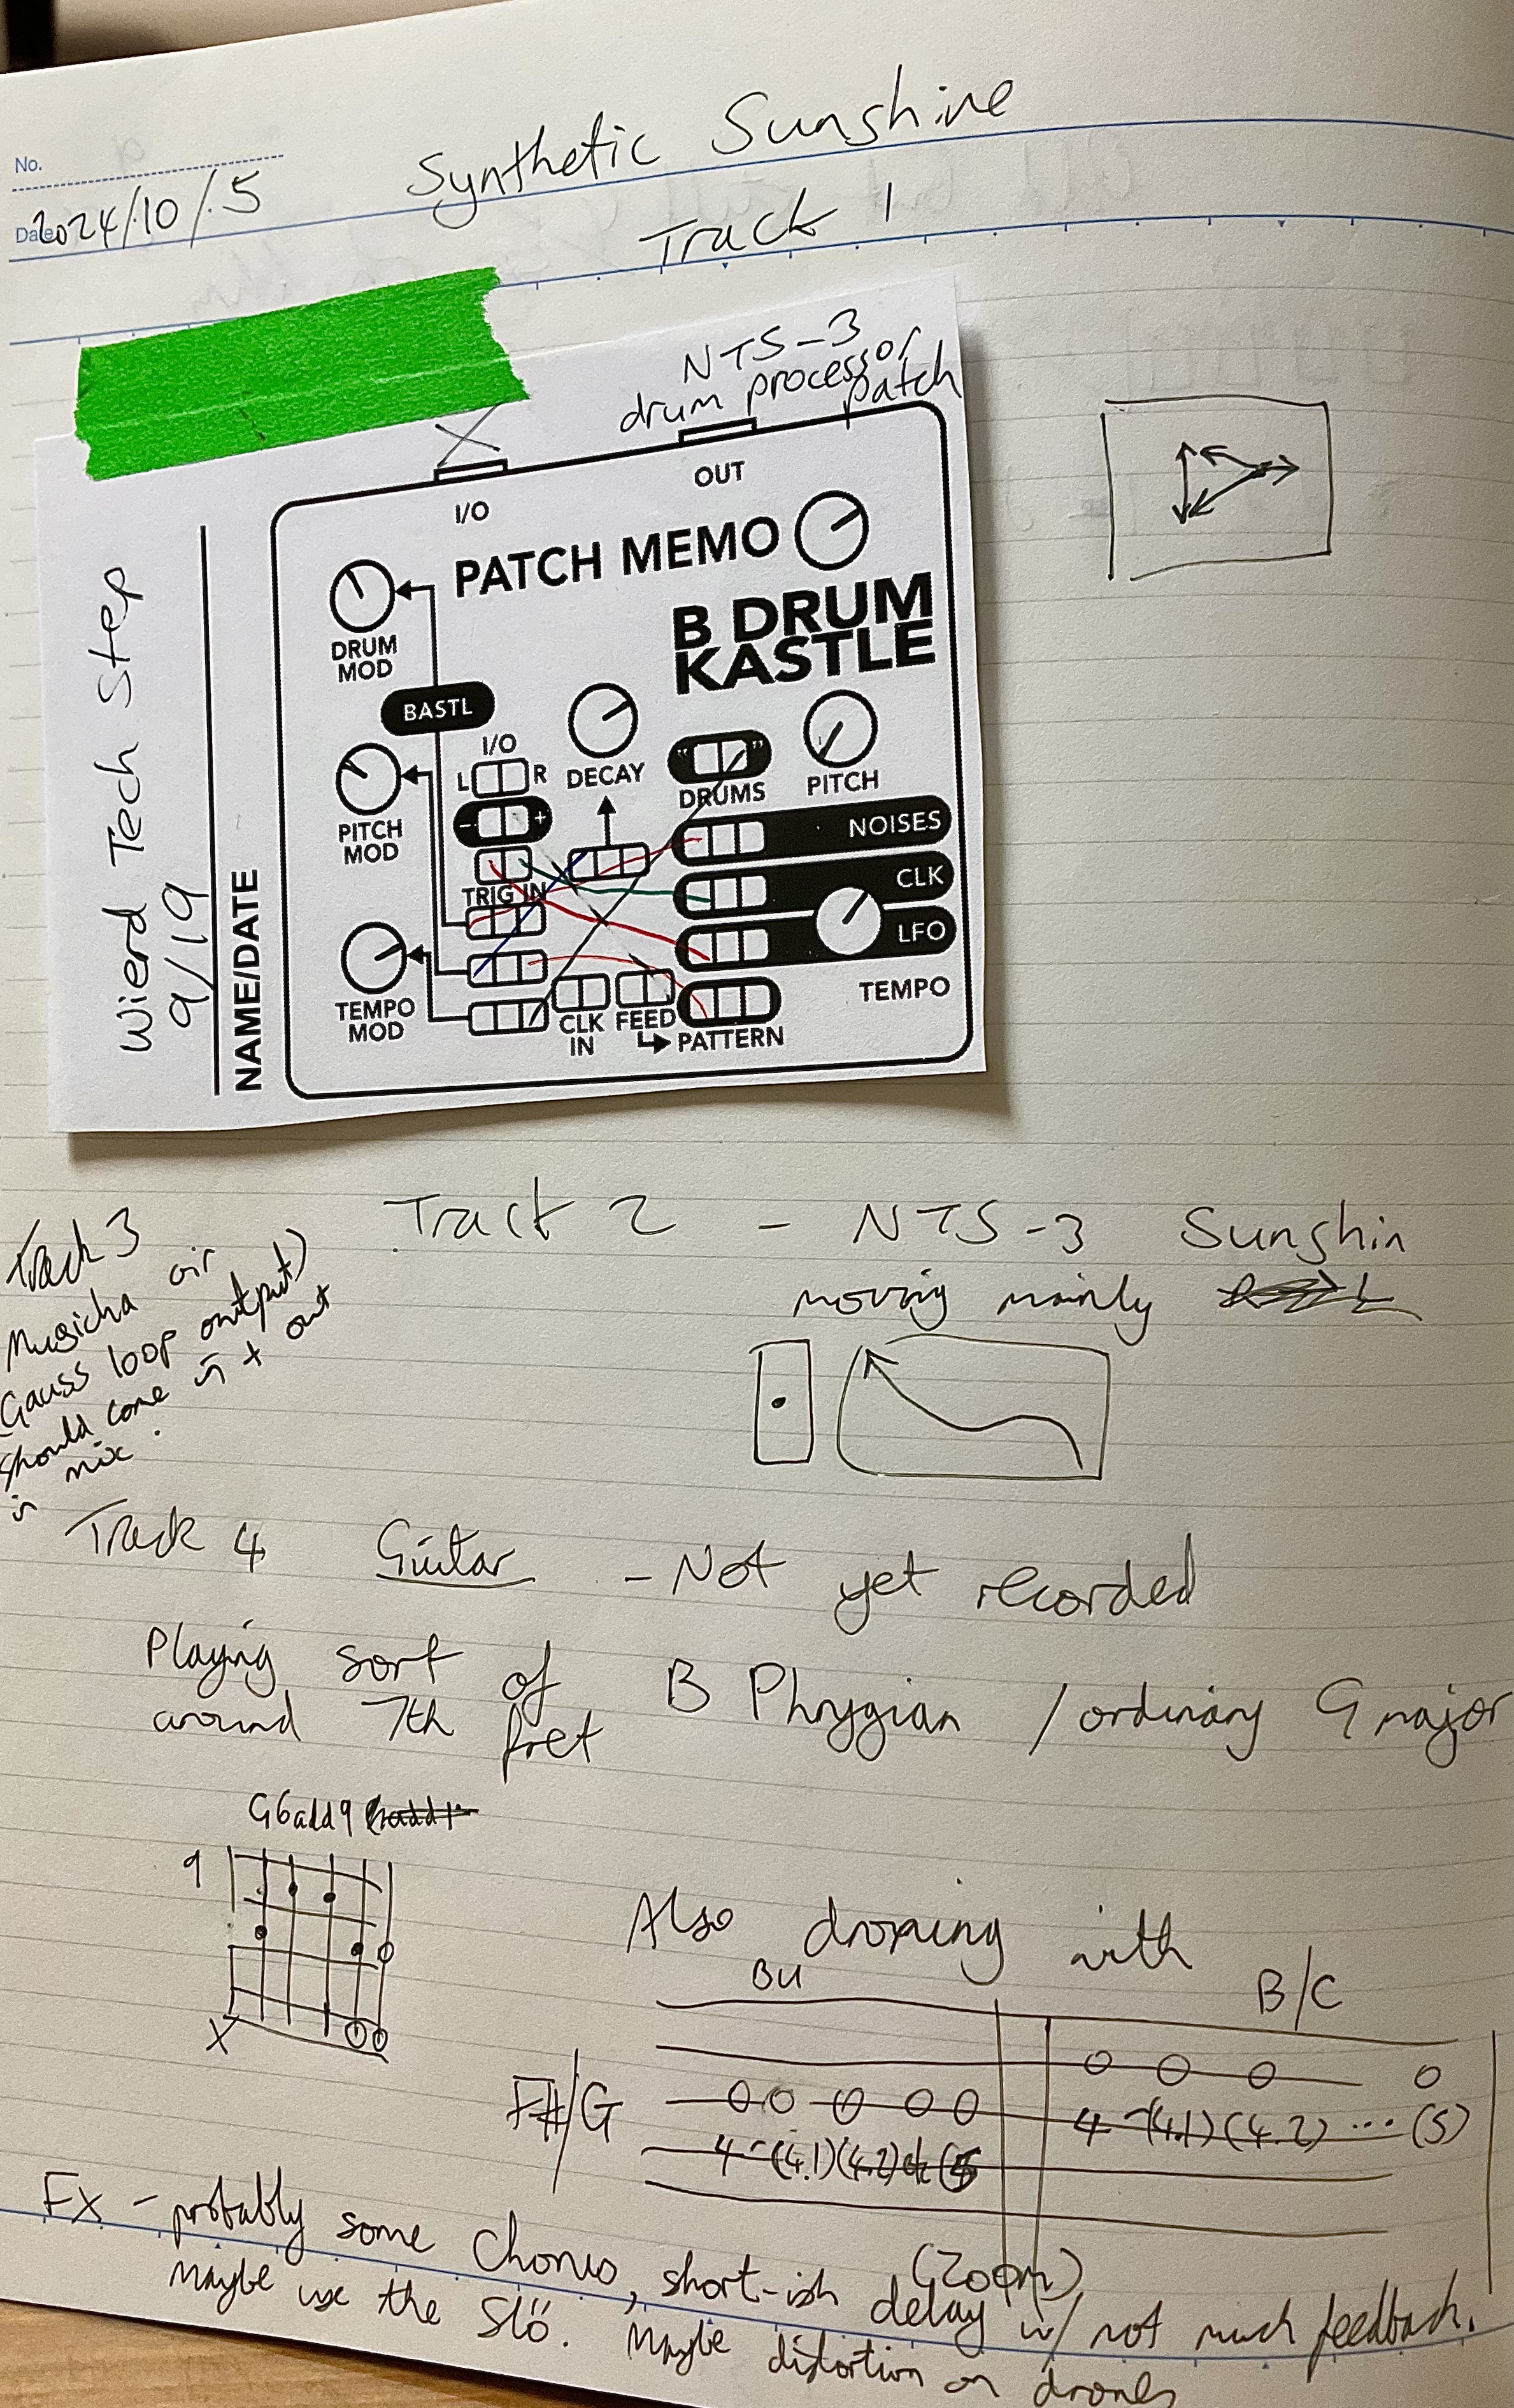 No.
Date 2024/10/5
Synthetic Sunshine
Track 1
NTS-3
drum processor
patch
I/O
OUT
PATCH MEMO
B DRUM
KASTLE
DRUM
MOD
BASTL
I/O
L R
DECAY
DRUMS
PITCH
PITCH
MOD
- +
NOISES
TRIG IN
CLK
LFO
TEMPO
MOD
CLK
IN
FEED
PATTERN
TEMPO
Wierd Tech Step
9/19
NAME/DATE
Track 2 - NTS-3 Sunshin
moving mainly
Track 3
Musicha air
Gauss loop output)
should come in + out
in mix.
Track 4 Guitar - Not yet recorded
Playing sort of B Phrygian / ordinary G major
around 7th fret
G6add9
9
X
Also droning with
BU
B/C
F#/G
0 0 0 0 0
4 (4.1) (4.2)
0 0 0 0
4 (4.1) (4.2) ... (5)
FX - probably some Chorus, short-ish delay w/ not much feedback.
(Zoom)
Maybe use the Slö. Maybe distortion on drones